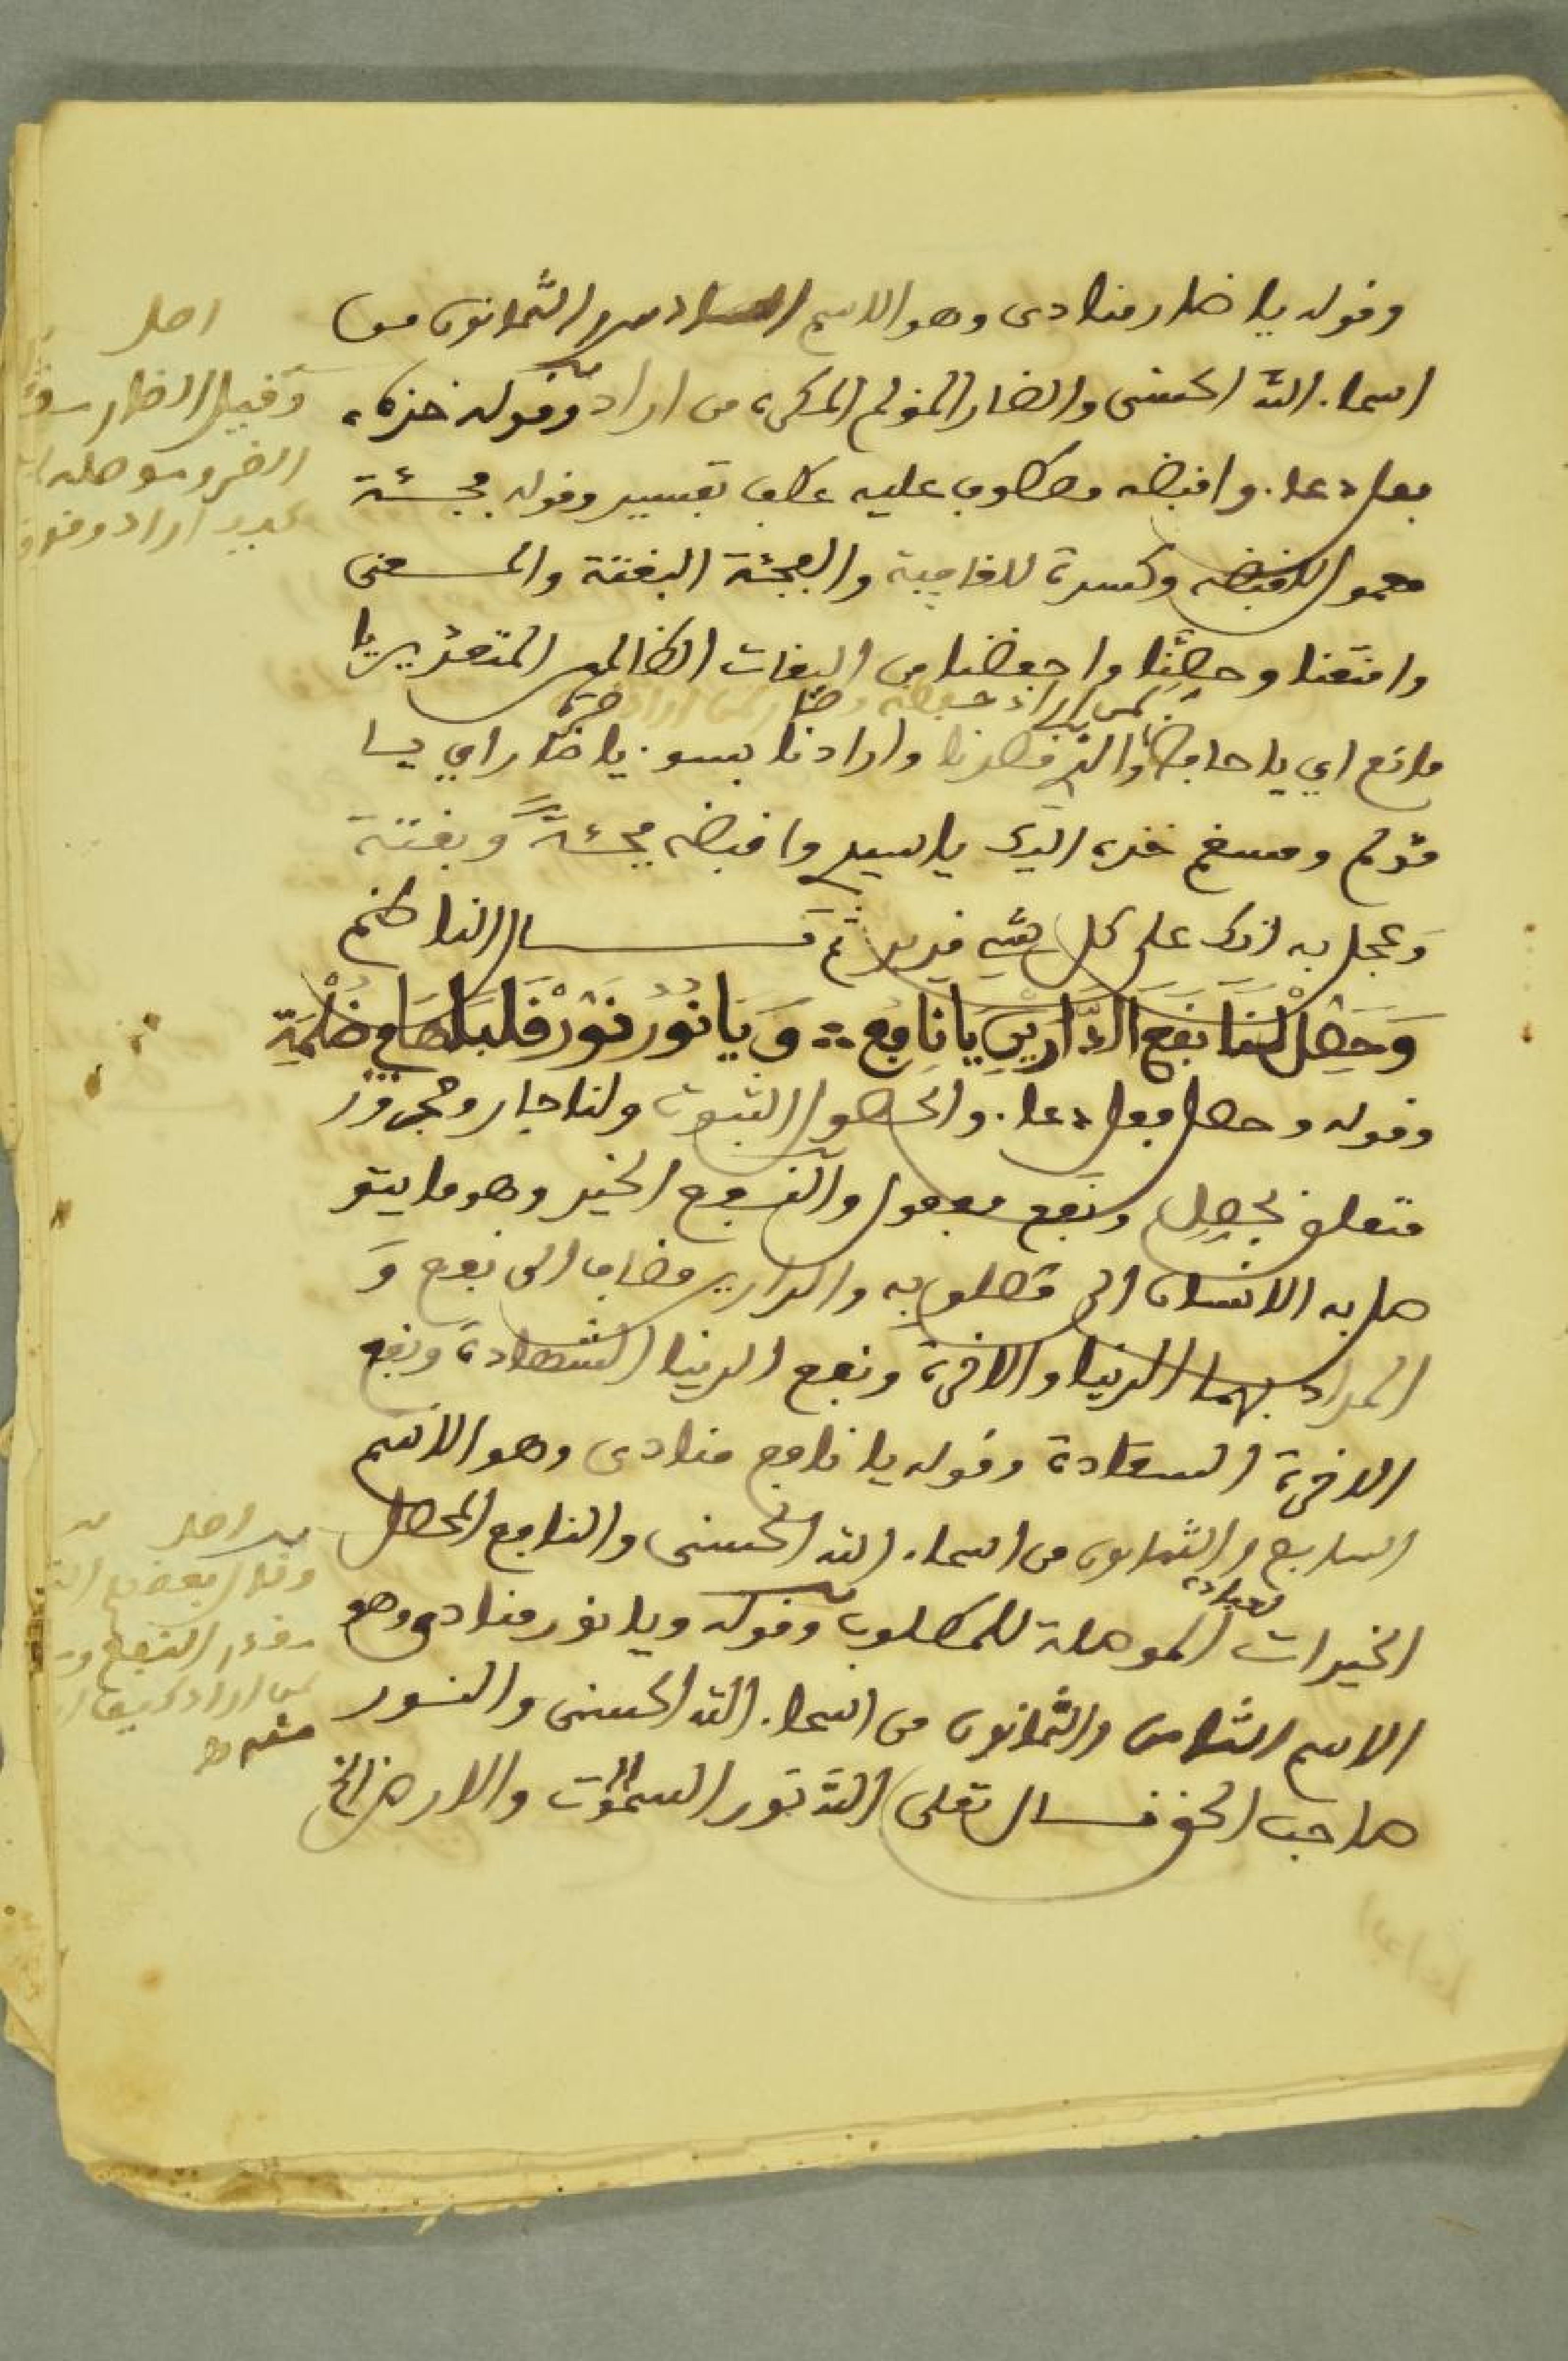 وقوله يا ضار منادى وهو الاسم السادس والثمانون من
اسماء الله الحسنى والضار المؤلم المكره من اراد وقوله خذه
فعل دعاء واقبضه معطوف عليه عطف تفسير وقوله فجئة
معمول لاقبضه وكسرة للقافية والفجئة البغتة والمعنى
وامنعنا وحصنا واحفظنا من البغات الظالمين المتعدين يا
مانع اي يا حافظ والذي قصدنا وارادنا بسوء يا ضار اي يا
مؤلم ومسقم خذه اليك يا سيدي واقبضه فجئة وبغتة
وعجل به انك على كل شيء قدير ثم قال الناظم
وَحَصِّلْ لَنَا نَفْعَ الدَّارَيْنِ يَا نَافِعُ ؞ وَيَا نُورُ نَوِّرْ قَلْبَنَا مِنْ ظُلْمَةِ
وقوله وحصل فعل دعاء والحصول الثبوت ولنا جار ومجرور
متعلق بحصل ونفع مفعول والنفع الخير وهو ما يتو
صل به الانسان الى مطلوبه والدارين مضاف الى نفع و
المراد بهما الدنيا والاخرة ونفع الدنيا الشهادة ونفع
الاخرة السعادة وقوله يا نافع منادى وهو الاسم
السابع والثمانون من اسماء الله الحسنى والنافع المحصل
لعباده
الخيرات الموصلة للمطلوب وقوله ويا نور منادى وهو
الاسم الثامن والثمانون من اسماء الله الحسنى والنور
صاحب الحق قال تعلى الله نور السموت والارض الخ
اصل
وقيل الضار
الضر وموصله
اراد وقوله
اصل
وقال بعضهم
النفع
لمن اراد